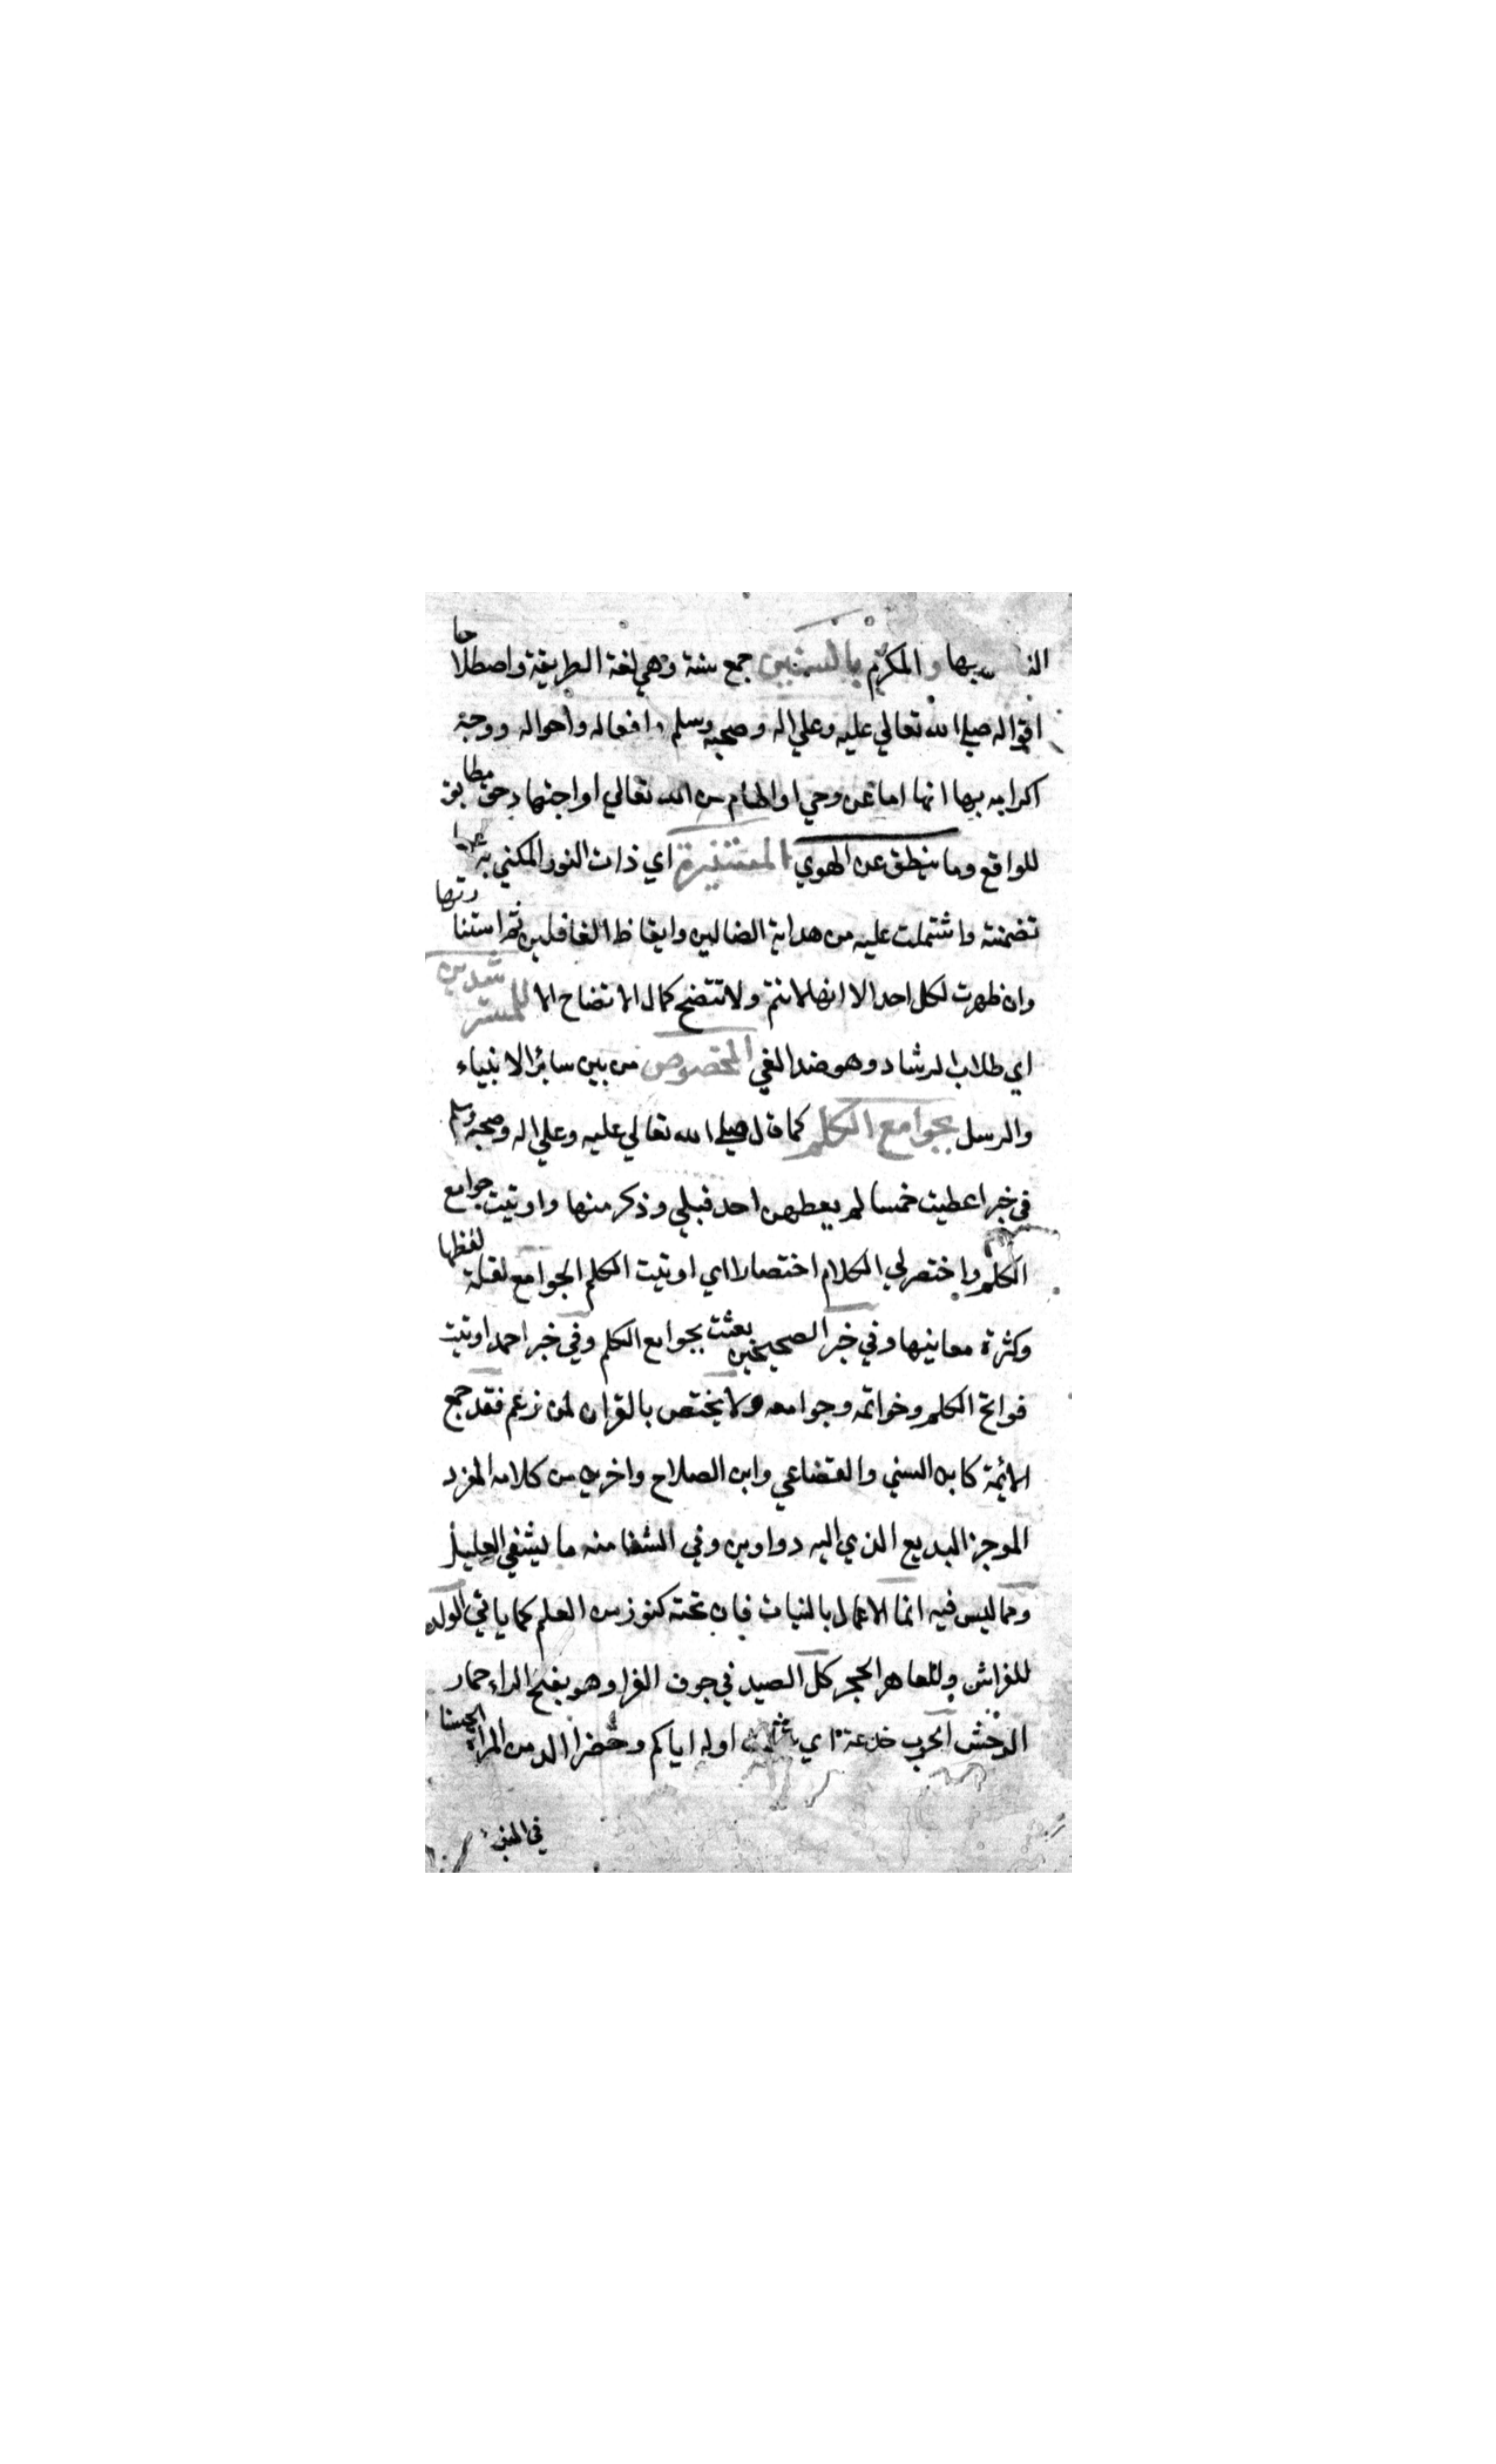 بها والمكرم بالسنن جمع سنة وهي لغة الطريقة واصطلاحا
اقواله صلى الله تعالي عليه وعلي اله وصحبه وسلم وافعاله واحواله ووجه
اكرامه بها انها اما عن وحي او الهام من الله تعالي او اجتهاد حق مطابق
للواقع وما ينطق عن الهوي المستنيرة اي ذات النور المكني به عما
تضمنته واشتملت عليه من هداية الضالين وايقاظ الغافلين ثم استنارتها
وان ظهرت لكل احد الا انها لا تتم ولا تتضح كمال الاتضاح الا للمسترشدين
اي طلاب الرشاد وهو ضد الغي المخصوص من بين سائر الانبياء
والرسل بجوامع الكلم كما قال صلي الله تعالي عليه وعلي اله وصحبه وسلم
في خبر اعطيت خمسا لم يعطهن احد قبلي وذكر منها واوتيت جوامع
الكلم واختصر لي الكلام اختصارا اي اوتيت الكلم الجوامع لقلة لفظها
وكثرة معانيها وفي خبر الصحيحين بعثت بجوامع الكلم وفي خبر احمد اوتيت
فواتح الكلم وخواتمه وجوامعه ولا يختص بالقران لمن زعم فقد جمع
الائمة كابن السني والقضاعي وابن الصلاح واخرين من كلامه المفرد
الموجز البديع الذي اليه دواوين وفي الشفا منه ما يشفي العليل
ومما ليس فيه انما الاعمال بالنيات فان تحته كنوز من العلم كما ياتي الولد
للفراش وللعاهر الحجر كل الصيد في جوف الفرا وهو بفتح الراء حمار
الوحش الحرب خدعة اي بتثليث اوله اياكم وخضرا الدمن المراة الحسنا
في المنبت